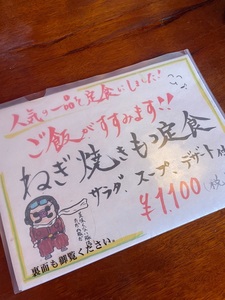 人気の一品を定食にしました!
ご飯がすすみます!!
ねぎ焼きもつ定食
サラダ、スープ、デザート付
¥1,100
裏面も御覧ください。